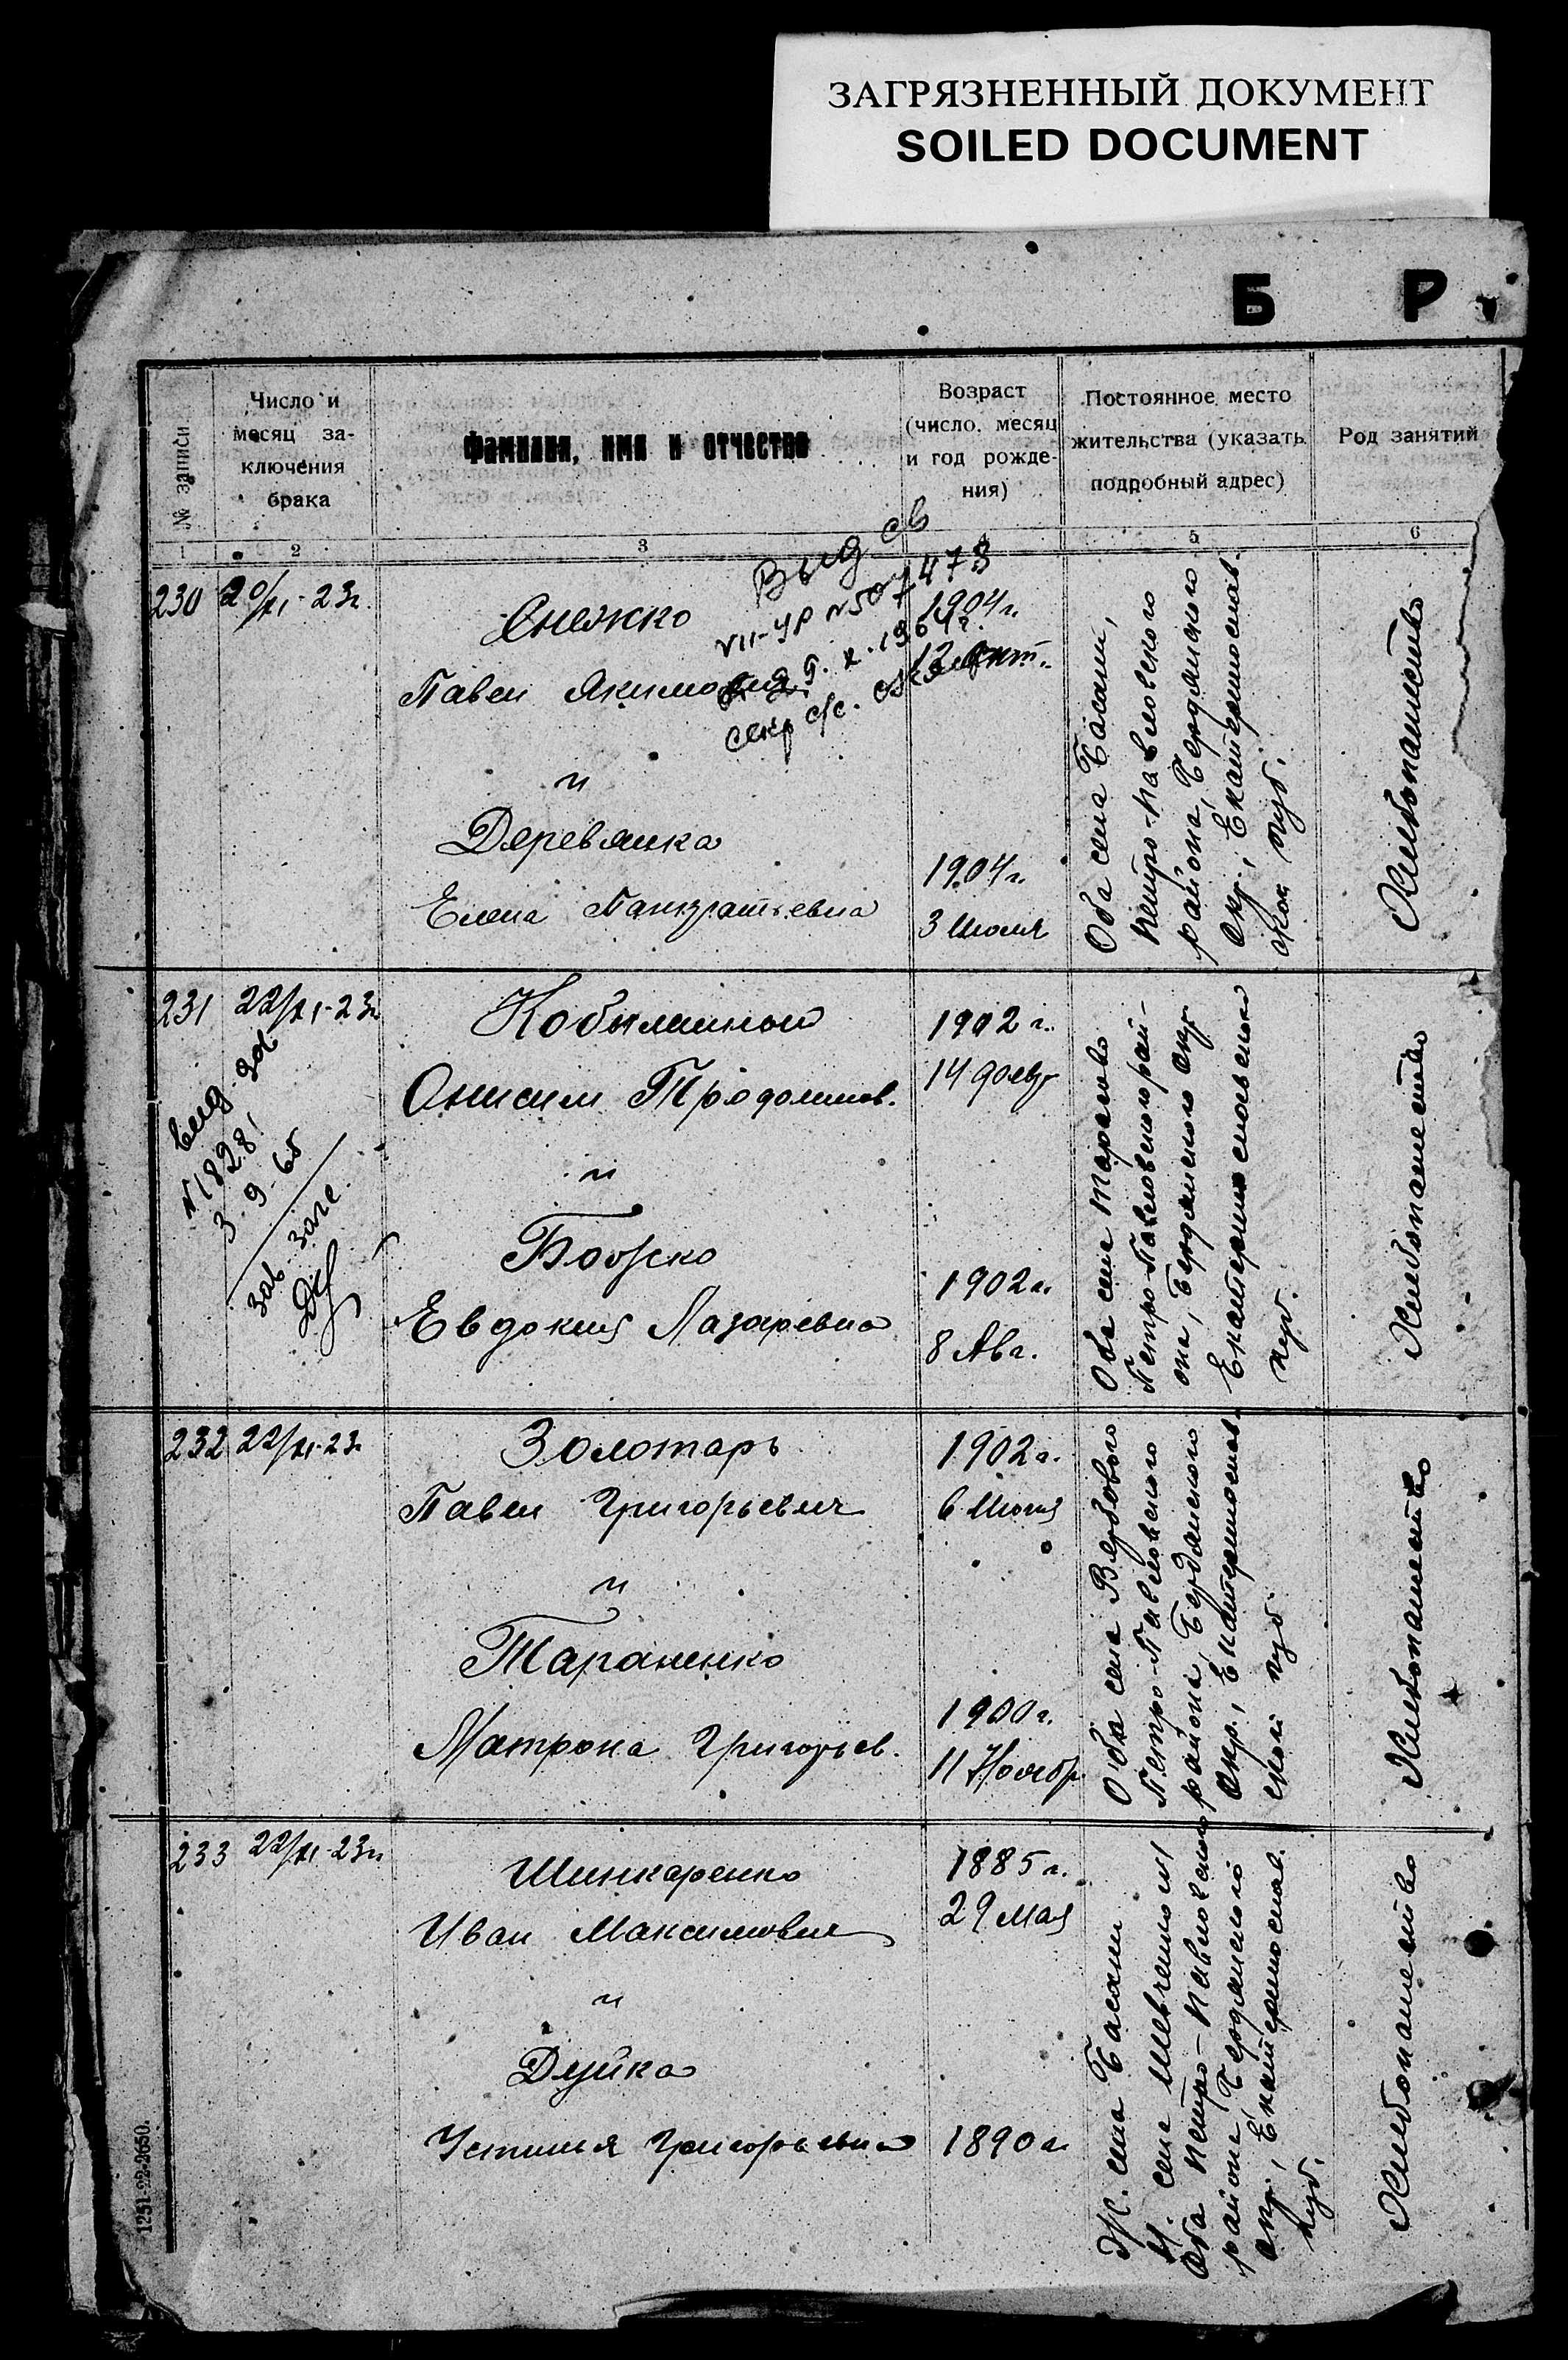 ЗАГРЯЗНЕННЫЙ ДОКУМЕНТ
SOILED DOCUMENT
Б Р
№ записи
Число и
месяц за-
ключения
брака
Фамилия, имя и отчество
Возраст
(число, месяц
и год рожде-
ния)
Постоянное место
жительства (указать
подробный адрес)
Род занятий
1 2 3 4 5 6
230
20/XI-23г.
Выд. св
VII-УР N507473
X.1964г.
секр с/с.
Снежко
Павел Якимович
и
Деревянка
Елена Панкратьевна
1904г.
12 Окт.
1904г.
3 Июля
Оба села Басани,
Петро-Павловского
района, Бердянского
Окр., Екатеринослав-
ской губ.
Хлебопашество
231
22/XI-23г
выд.
N 1828!
3-9-65
зав. загс.
Кобылянский
Онисим Трофимов.
и
Бойко
Евдокия Лазаревна
1902г.
14 февр
1902г.
8 Авг.
Оба села
Петро-Павловского рай-
она, Бердянского Окр
Екатеринославской
губ.
Хлебопашество
232
22/XI-23г
Золотарь
Павел Григорьевич
и
Тараненко
Матрона Григорьев.
1902г.
6 Июня
1900г.
11 Ноябр
Оба села Вербового
Петро-Павловского
района, Бердянского
Окр., Екатеринослав-
ской губ
Хлебопашество
233
22/XI-23г
Шинкаренко
Иван Максимович
и
Дейка
Устиния Григорьевна
1885г.
29 Мая
1890г.
Ж. села Басани
Н. села
Оба Петро-Павловского
района, Бердянского
Окр., Екатеринослав.
губ.
Хлебопашество
1251-22-2650.